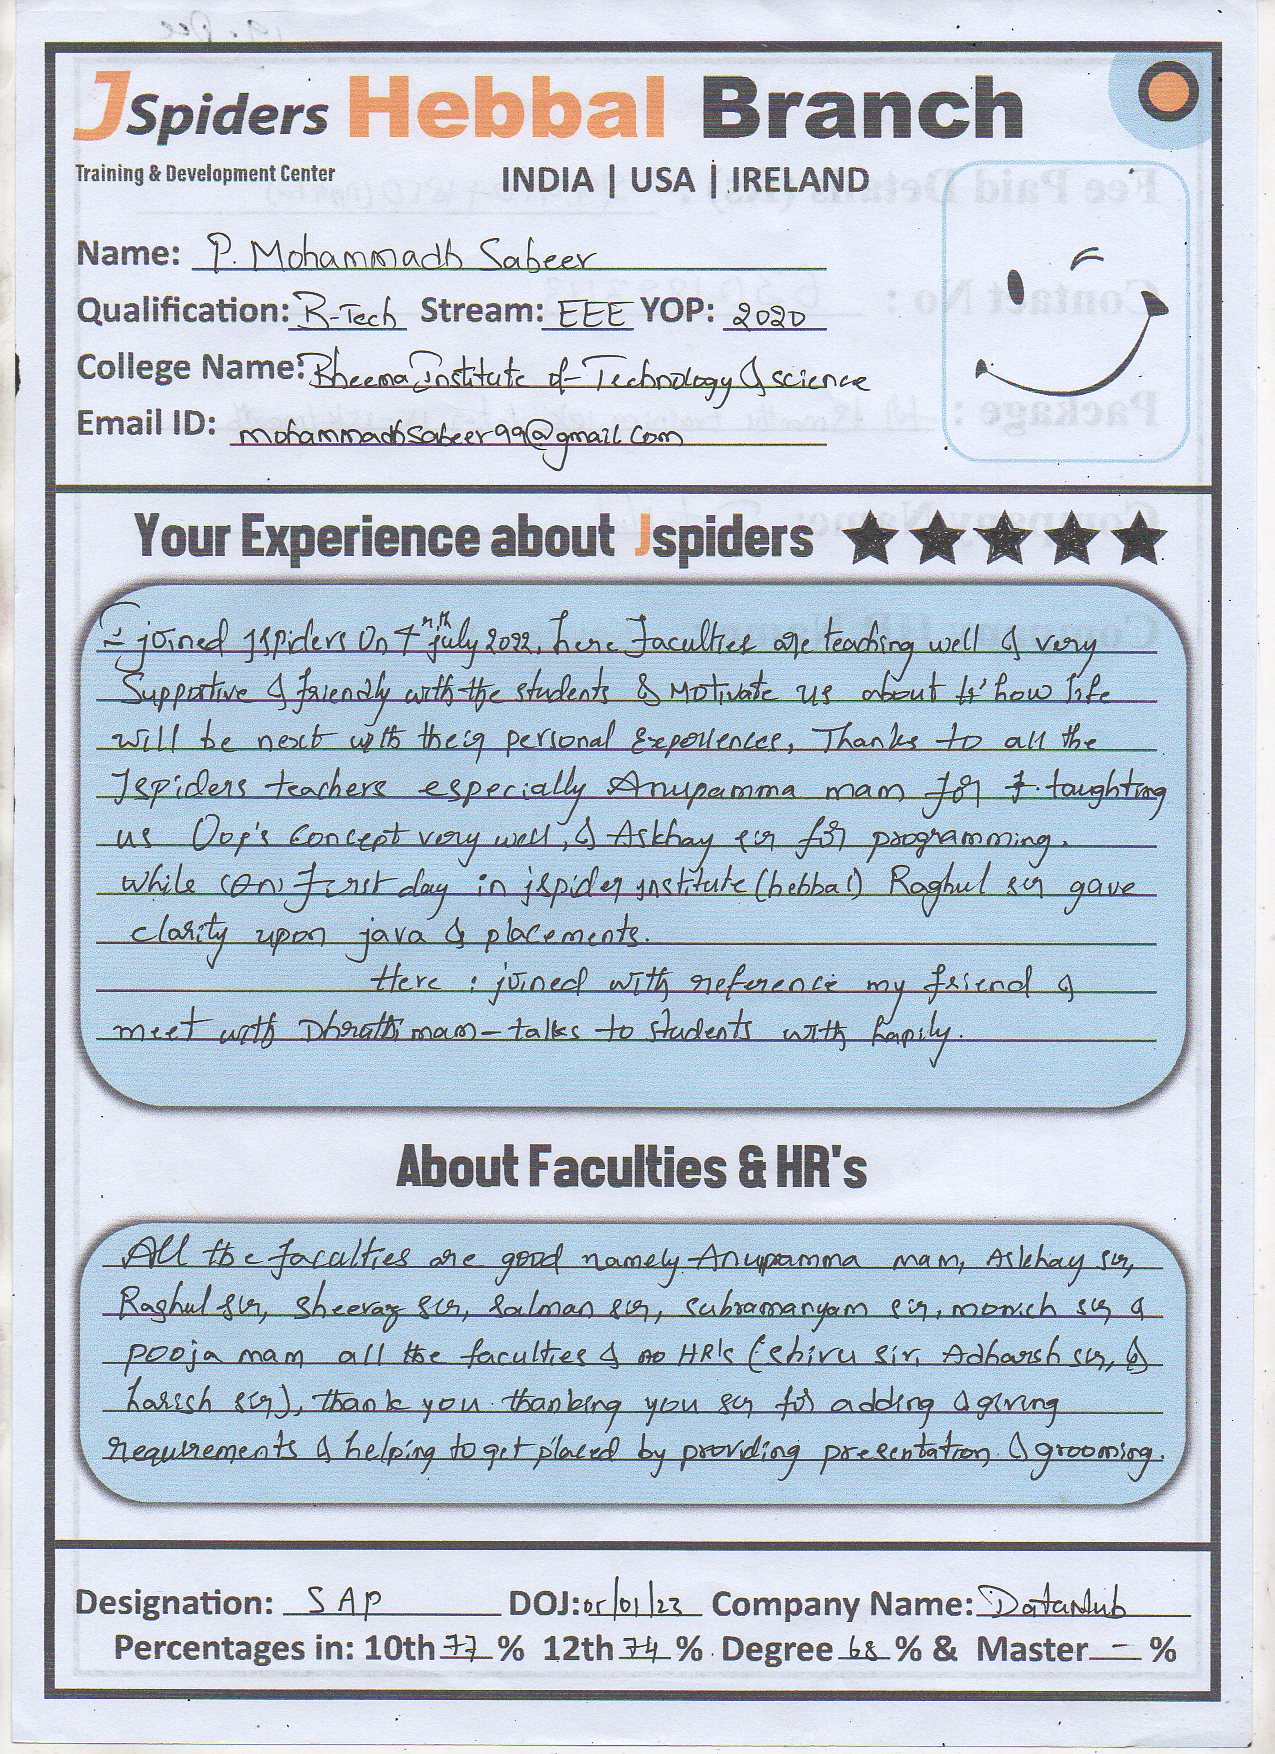 JSpiders Hebbal Branch
Training & Development Center
INDIA | USA | IRELAND
Name: P. Mohammadh Sabeer
Qualification: B-Tech Stream: EEE YOP: 2020
College Name: Bheema Institute of Technology & science
Email ID: mohammadhsabeer99@gmail.com
Your Experience about Jspiders
I joined Jspiders On 4th july 2022, here faculties are teaching well & very
Supportive & friendly with the students & Motivate us about how life
will be next with their personal Experiences, Thanks to all the
Jspiders teachers especially Anupamma mam for taughting
us Oop's Concept very well, & Askhay sir for programming.
While (on) first day in jspider institute (hebbal) Raghul sir gave
clarity upon java & placements.
Here i joined with reference my friend &
meet with Dhruthi mam - talks to students with hapily.
About Faculties & HR's
All the faculties are good namely Anupamma mam, Askhay sir,
Raghul sir, Sheeraz sir, Salman sir, Subramanyam sir, monish sir &
pooja mam all the faculties & HR's (shivu sir, Adharsh sir, &
harish sir), thank you thanking you sir for adding & giving
requirements & helping to get placed by providing presentation & grooming.
Designation: SAP DOJ: 05/01/23 Company Name: DataHub
Percentages in: 10th 77 % 12th 74 % Degree 68 % & Master - %